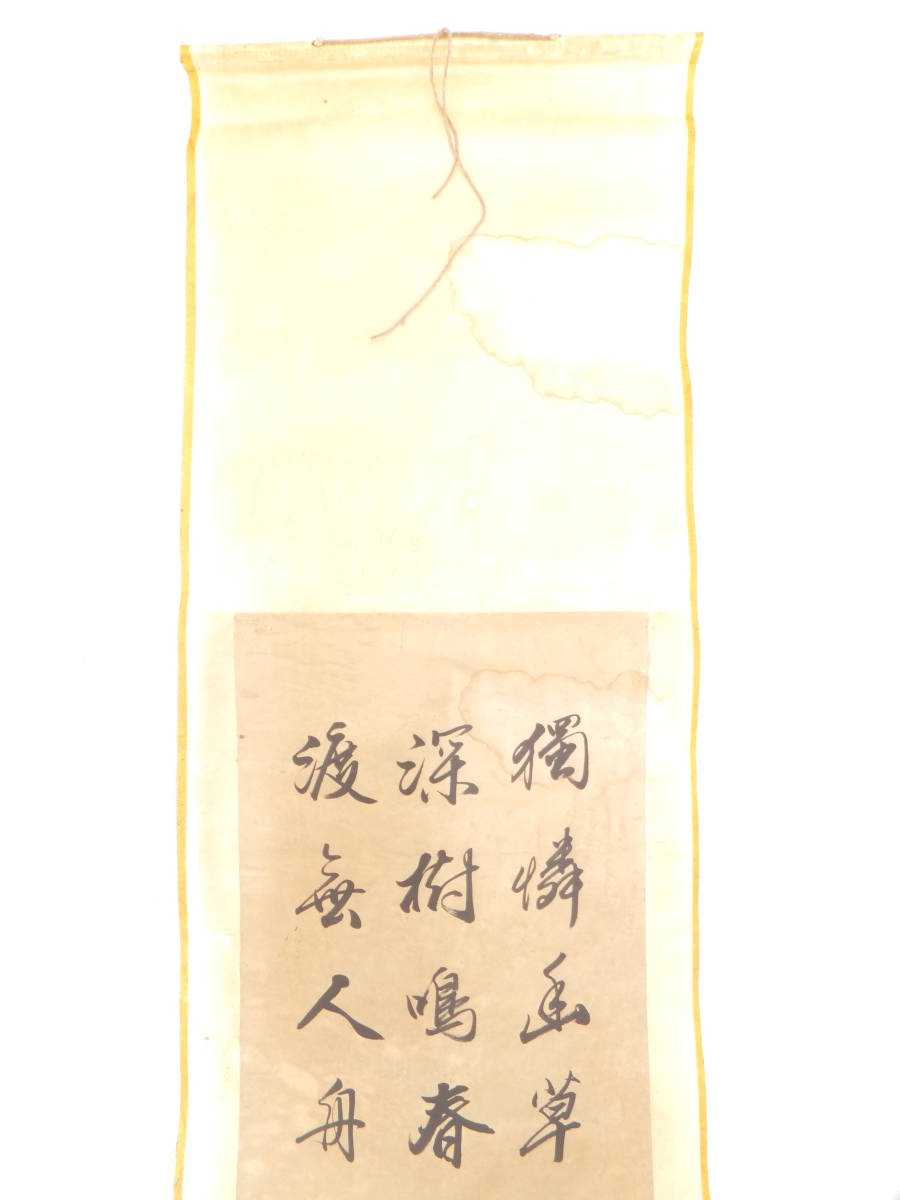 獨憐幽草
深樹鳴春
渡無人舟